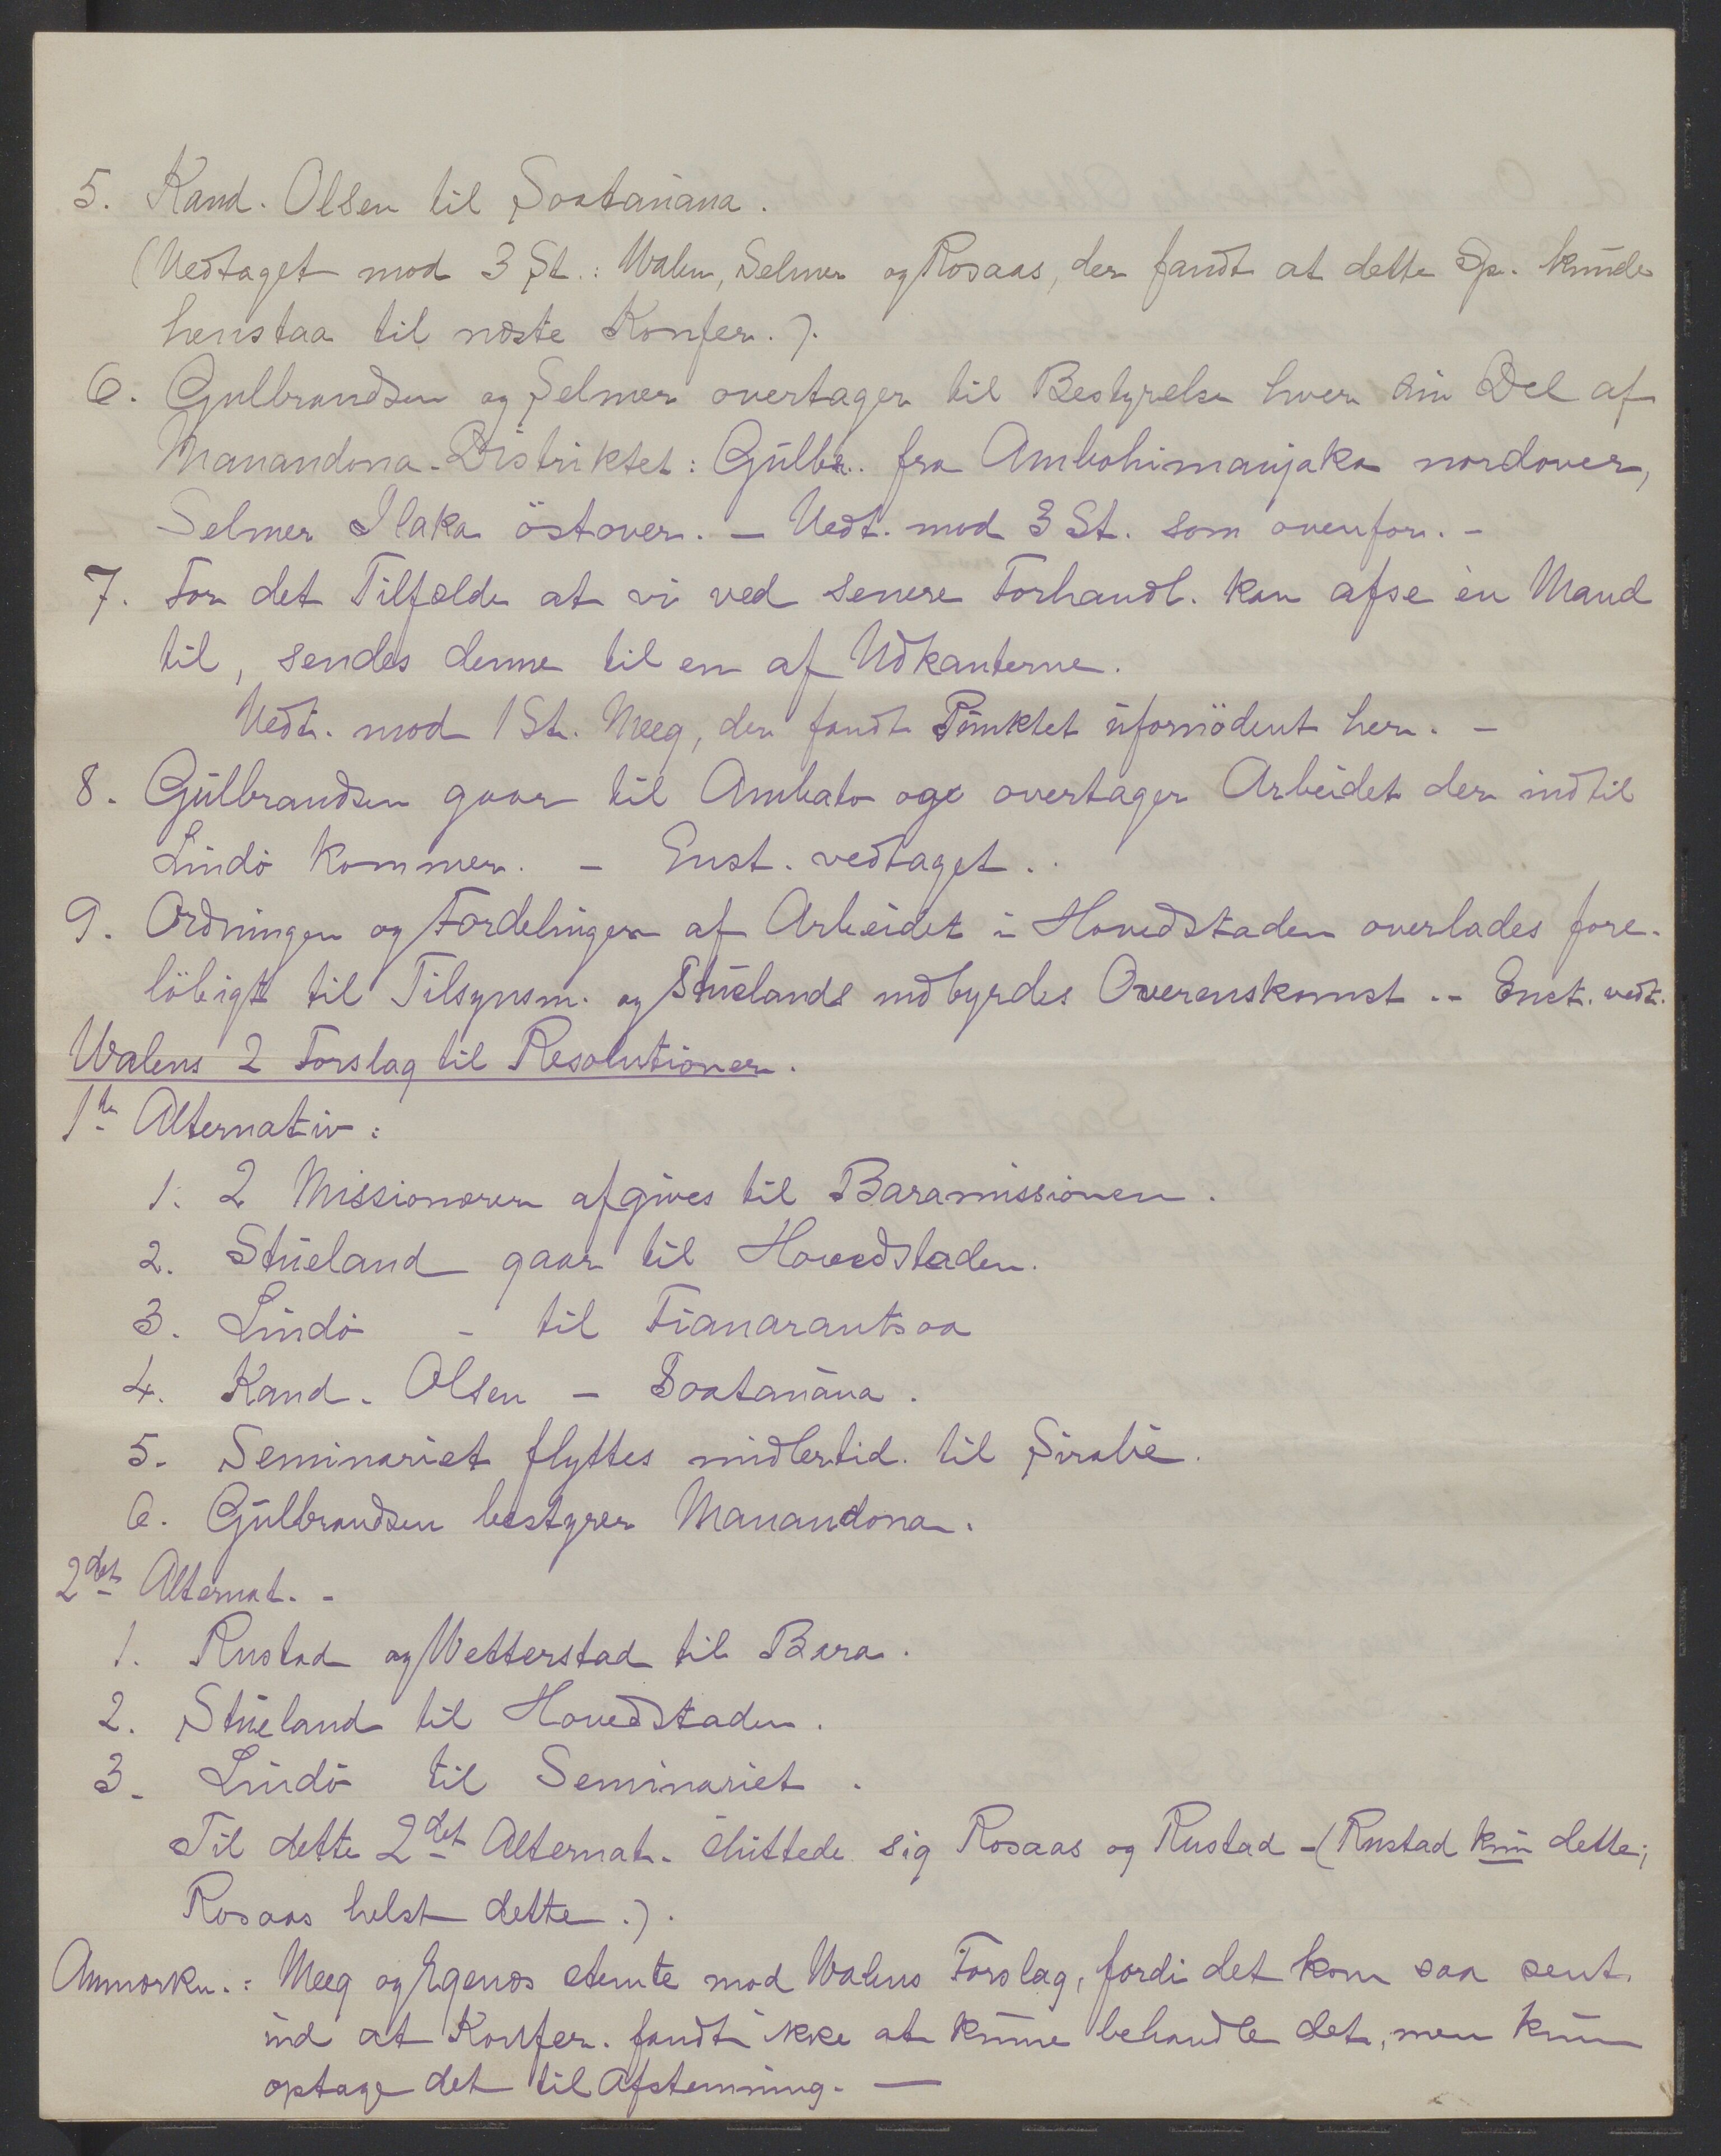 5. Kand. Olsen til Soatanana.
(Vedtaget mod 3 St.: Walen, Selmer og Rosaas, der fandt at dette Sp. kunde
henstaa til næste Konfer.).
6. Gulbrandsen og Selmer overtager til Bestyrelse hver sin Del af
Manandona-Distriktet: Gulbr. fra Ambohimanjaka nordover,
Selmer Ilaka östover. – Vedt. mod 3 St. som ovenfor. –
7. For det Tilfælde at vi ved senere Forhandl. kan afse èn Mand
til, sendes denne til en af Udkanterne.
Vedt. mod 1 St. Meeg, der fandt Punktet ufornödent her. –
8. Gulbrandsen gaar til Ambato og overtager Arbeidet der indtil
Lindö kommer. – Enst. vedtaget.
9. Ordningen og Fordelingen af Arbeidet i Hovedstaden overlades fore-
löbigt til Tilsynsm. og Stuelands indbyrdes Overenskomst. – Enst. vedt.
Walens 2 Forslag til Resolutioner.
1ste Alternativ:
1. 2 Missionærer afgives til Baramissionen.
2. Stueland gaar til Hovedstaden.
3. Lindö - til Fianarantsoa
4. Kand. Olsen – Soatanana.
5. Seminariet flyttes midlertid. til Sirabè.
6. Gulbrandsen bestyrer Manandona.
2det Alternat. -
1. Rustad og Wetterstad til Bara.
2. Stueland til Hovedstaden.
3. Lindö til Seminariet.
Til dette 2det Alternat. sluttede sig Rosaas og Rustad – (Rustad kun dette;
Rosaas helst dette.).
Anmærkn.: Meeg og Egenæs stemte mod Walens Forslag, fordi det kom saa sent
ind at Konfer. fandt ikke at kunne behandle det, men kun
optage det til Afstemning. —